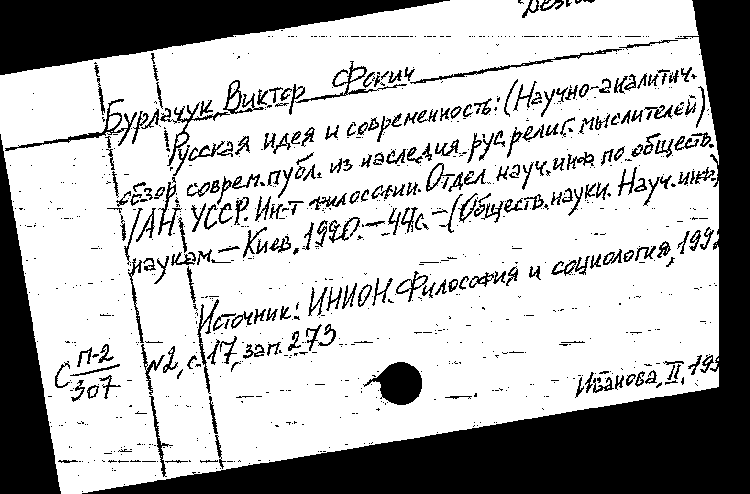 Бурлачук, Виктор Фокич
Русская идея и современность: (Научно-аналитич.
обзор соврем. публ. из наследия рус. религ. мыслителей)
/АН УССР. Ин-т философии. Отдел науч. инф. по обществ.
наукам. — Киев, 1990. — 44с. — (Обществ. науки. Науч. инф.)
Источник: ИНИОН. Философия и социология, 1992
С П-2/307 №2, с. 17, зап. 273
Иванова, II, 199